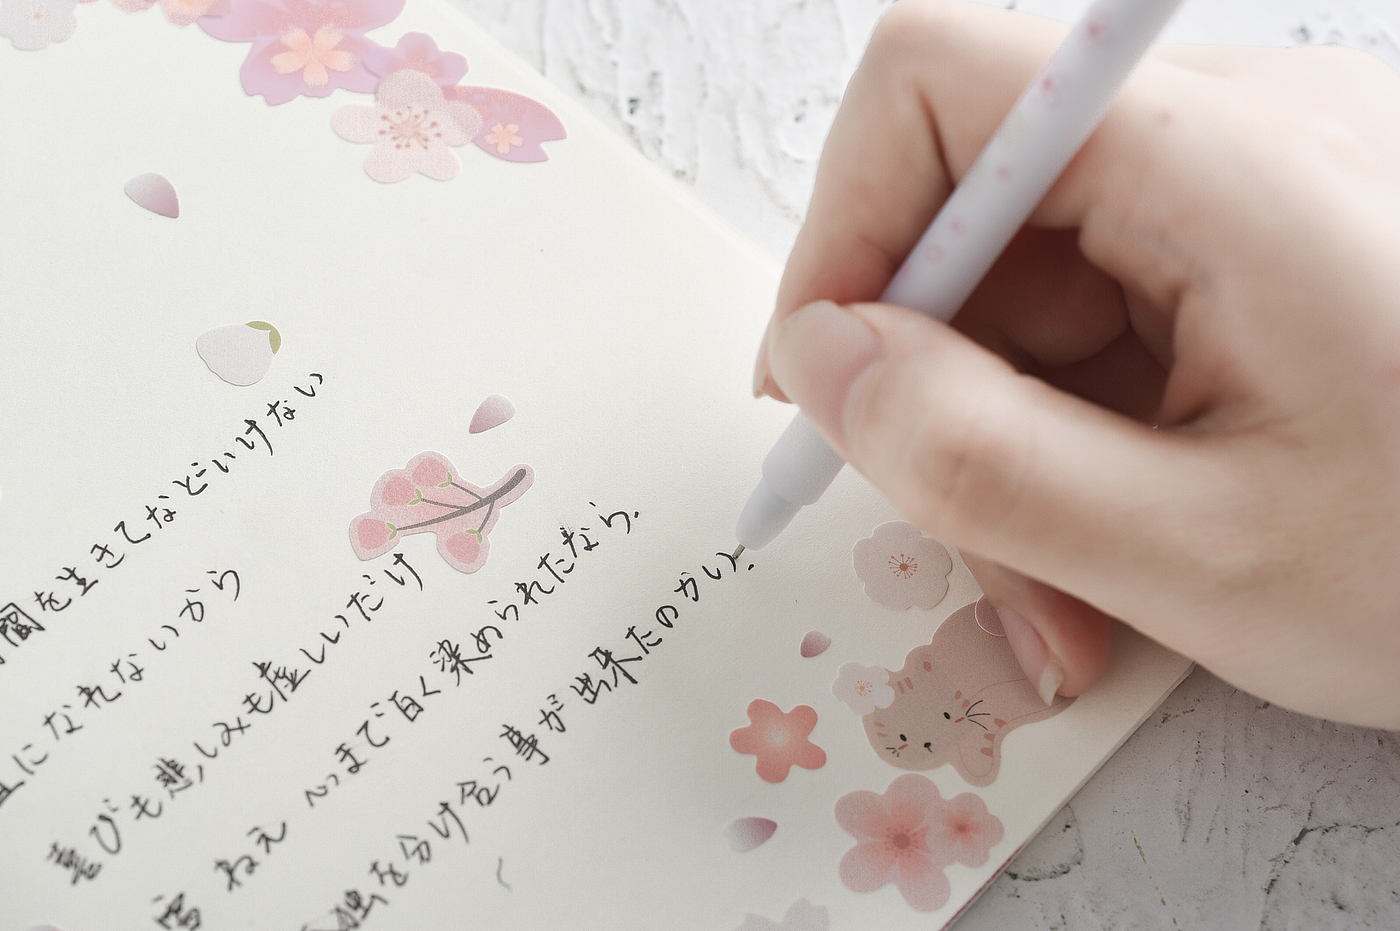 間を生きてなどいけない
になれないから
喜びも悲しみも虚しいだけ
雪 ねえ 心まで白く染められたなら.
独を分け合う事が出来たのかい.